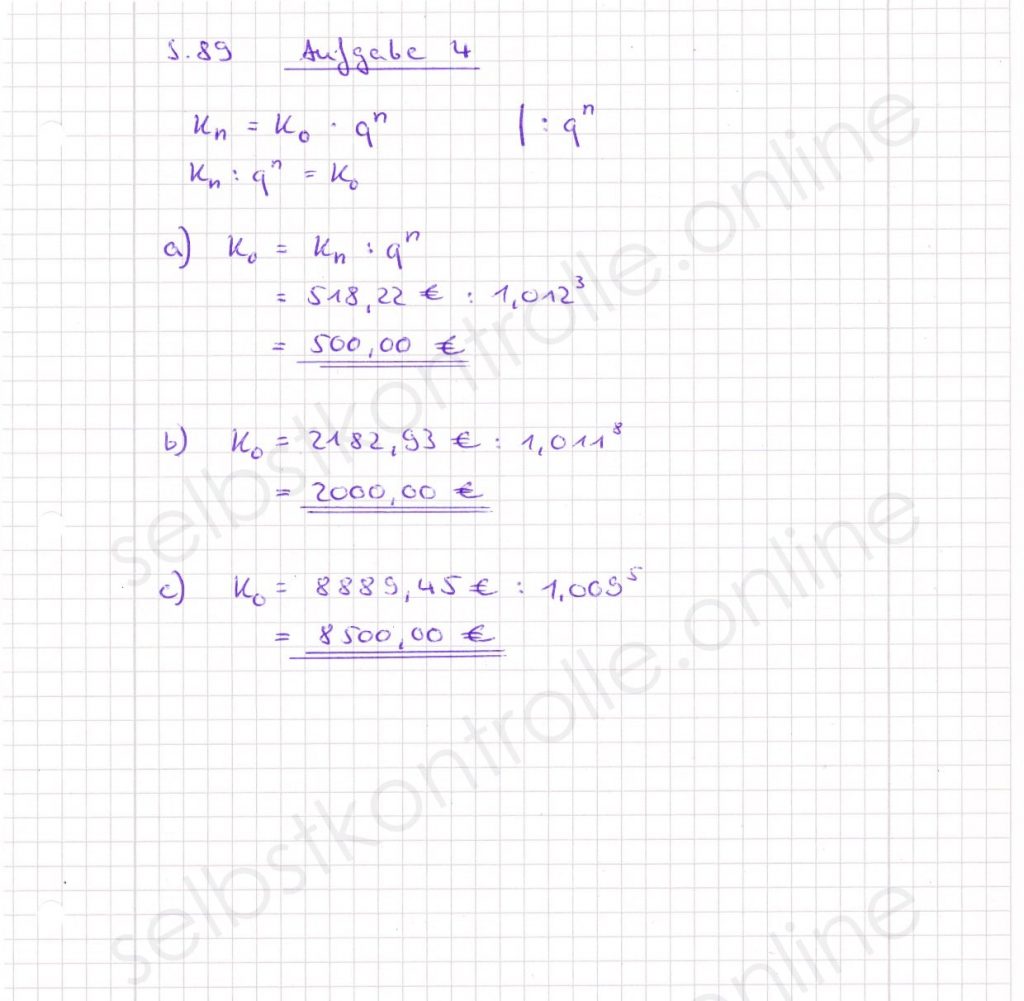 S.89 Aufgabe 4
Kₙ = K₀ · qⁿ | : qⁿ
Kₙ : qⁿ = K₀
a) K₀ = Kₙ : qⁿ
= 518,22 € : 1,012³
= 500,00 €
b) K₀ = 2182,93 € : 1,011⁸
= 2000,00 €
c) K₀ = 8889,45 € : 1,009⁵
= 8500,00 €
selbstkontrolle.online
selbstkontrolle.online
selbstkontrolle.online